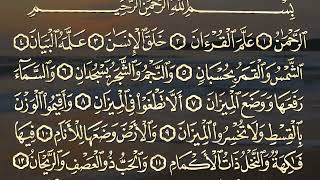 بِسْمِ اللَّهِ الرَّحْمَٰنِ الرَّحِيمِ
الرَّحْمَٰنُ ١ عَلَّمَ الْقُرْءَانَ ٢ خَلَقَ الْإِنسَٰنَ ٣ عَلَّمَهُ الْبَيَانَ ٤
الشَّمْسُ وَالْقَمَرُ بِحُسْبَانٍ ٥ وَالنَّجْمُ وَالشَّجَرُ يَسْجُدَانِ ٦ وَالسَّمَآءَ
رَفَعَهَا وَوَضَعَ الْمِيزَانَ ٧ أَلَّا تَطْغَوْا۟ فِى الْمِيزَانِ ٨ وَأَقِيمُوا۟ الْوَزْنَ
بِالْقِسْطِ وَلَا تُخْسِرُوا۟ الْمِيزَانَ ٩ وَالْأَرْضَ وَضَعَهَا لِلْأَنَامِ ١٠ فِيهَا
فَٰكِهَةٌ وَالنَّخْلُ ذَاتُ الْأَكْمَامِ ١١ وَالْحَبُّ ذُو الْعَصْفِ وَالرَّيْحَانُ ١٢